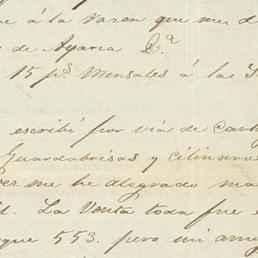 e á la Varon que me d
de Ayarza D.ª
15 p.s Mensales á las
escribí por via de Cart
Guardabrisas y cilin
me he alegrado ma
La Venta toda fue e
que 553. pero mi am